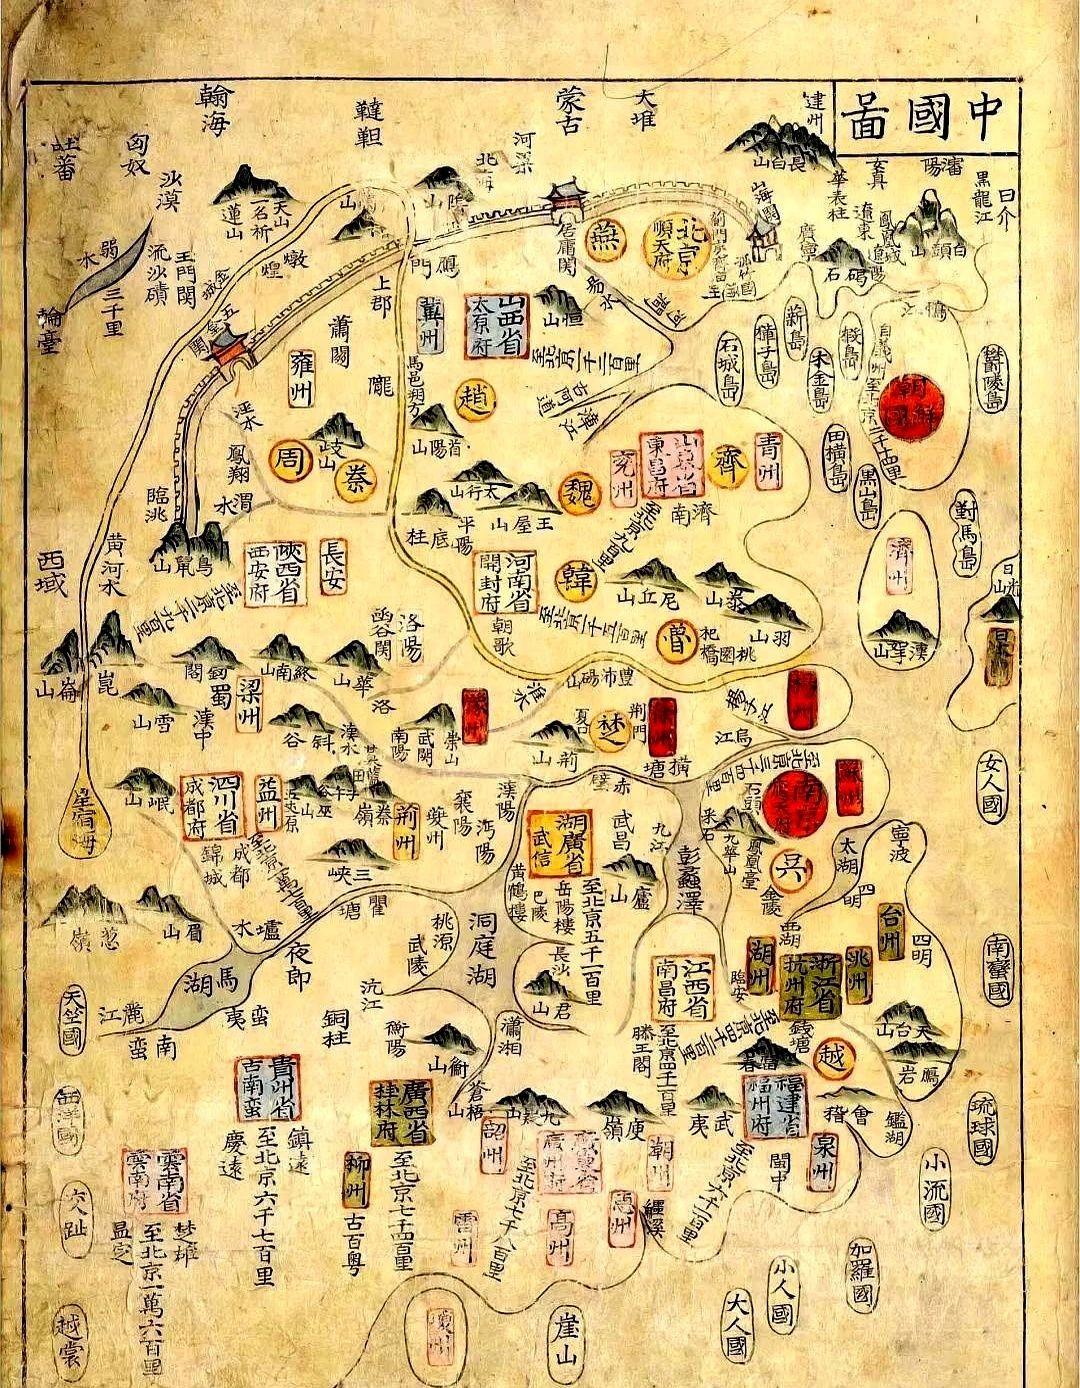 中國啚
翰海
韃靼
蒙古
大堆
建州
吐蕃
匈奴
沙漠
河梁
北海
長白山
女真
瀋陽
黑龍江
華表柱
遼東
鳳凰城
白頭山
遼陽
廣寧
碣石
山海關
天山
一名祈
蓮山
弱水
三千里
輪臺
流沙磧
玉門關
燉煌
金城
五
居庸關
鴈門
上郡
燕
北京
順天府
易水
恒山
山西省
太原府
冀州
蕭關
隴
雍州
馬邑朔方
趙
首陽山
涇水
鳳翔
岐山
周
秦
臨洮
渭水
鳥鼠山
古河道
漳江
石城島
獐子島
薪島
朱金島
椵島
鬱陵島
朝鮮國
自義州至北京二千四里
田橫島
黑山島
對馬島
濟州
漢拏山
日光山
日本
青州
齊
山東省
東昌府
兗州
濟南
至北京九百里
魏
太行山
王屋山
平陽
底柱
西域
黄河水
陝西省
西安府
長安
河南省
開封府
朝歌
韓
尼丘山
泰山
羽山
魯
杞橋
桃園
豐沛碭山
函谷関
洛陽
崑崙山
劎閣
終南山
華山
雪山
蜀
漢中
梁州
斜谷
漢水
南陽
武關
崇山
洛
淮水
夏口
楚
荆門
荊山
橫塘
烏江
岷山
四川省
成都府
益州
錦城
成都
秦嶺
巫山
荊州
夔州
襄陽
漢陽
沔陽
三峽
瞿塘
赤壁
武昌
九江
湖廣省
武信
黄鶴樓
巴陵
岳陽樓
長沙
至北京五千一百里
廬山
彭蠡澤
采石
石頭
九華山
鳳凰臺
南京
吳
金陵
太湖
寧波
四明
台州
四明
西湖
湖州
臨安
浙江省
杭州府
錢塘
天台山
鴈岩
越
會稽
鑑湖
女人國
南蠻國
琉球國
小流國
星宿海
葱嶺
眉山
瀘水
馬湖
夜郎
麗江
南蠻
蠻夷
天竺國
銅柱
桃源
武陵
洞庭湖
沅江
君山
瀟湘
衡陽
衡山
蒼梧山
江西省
南昌府
滕王閣
至北京四千二百里
貴州省
古南蛮
慶遠
鎮遠
至北京六千七百里
廣西省
桂林府
至北京七千四百里
柳州
古百粤
韶州
庾嶺
武夷
福建省
福州府
泉州
閩中
潮州
惠州
鱷溪
至北京六千一百里
至北京七千八百里
高州
雷州
瓊州
崖山
西洋國
交趾
越裳
雲南省
雲南府
楚雄
至北京一萬六百里
加羅國
小人國
大人國